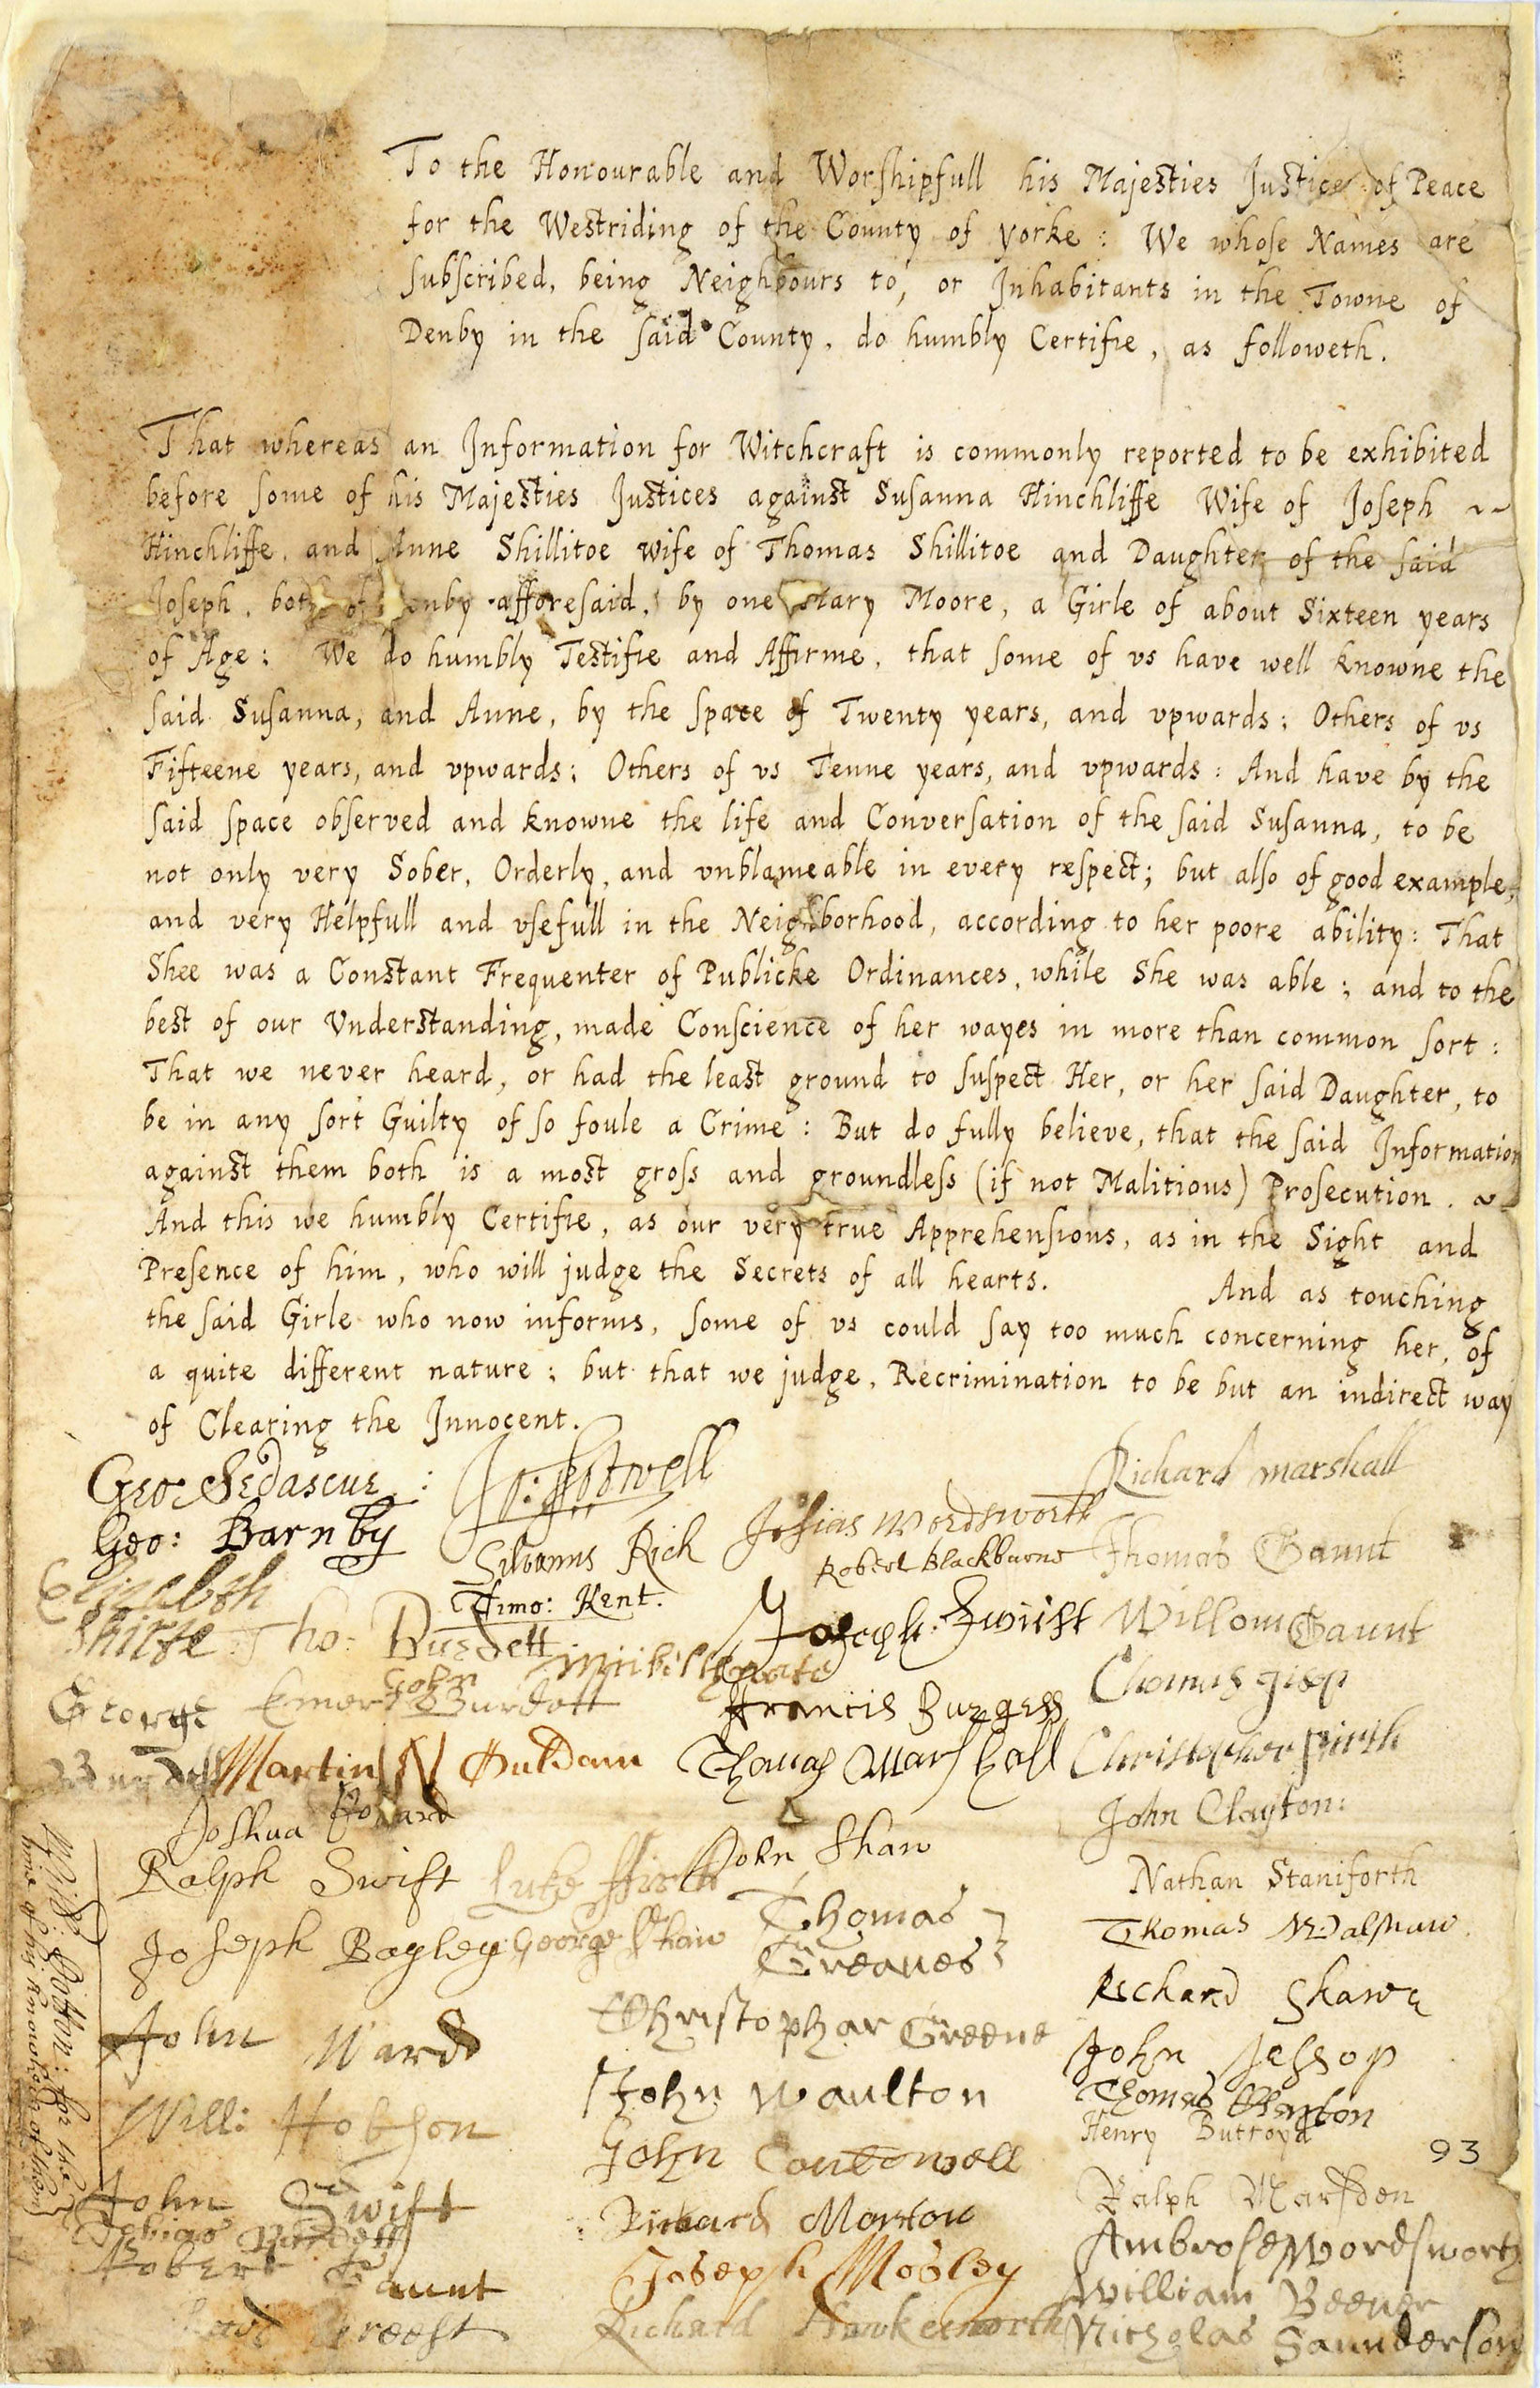 To the Honourable and Worshipfull his Majesties Justices of Peace
for the Westriding of the County of Yorke : We whose Names are
subscribed, being Neighbours to, or Inhabitants in the Towne of
Denby in the said County, do humbly Certifie, as followeth.
That whereas an Information for Witchcraft is commonly reported to be exhibited
before some of his Majesties Justices against Susanna Hinchliffe Wife of Joseph ~~
Hinchliffe, and Anne Shillitoe wife of Thomas Shillitoe and Daughter of the said
Joseph, both of Denby afforesaid, by one Mary Moore, a Girle of about Sixteen years
of Age : We do humbly Testifie and Affirme, that some of vs have well knowne the
said Susanna, and Anne, by the space of Twenty years, and vpwards ; Others of vs
Fifteene years, and vpwards ; Others of vs Tenne years, and vpwards : And have by the
said space observed and knowne the life and Conversation of the said Susanna, to be
not only very Sober, Orderly, and vnblameable in every respect ; but also of good example,
and very Helpfull and vsefull in the Neighborhood, according to her poore ability : That
Shee was a Constant Frequenter of Publicke Ordinances, while She was able ; and to the
best of our Vnderstanding, made Conscience of her wayes in more than common sort :
That we never heard, or had the least ground to suspect Her, or her said Daughter, to
be in any sort Guilty of so foule a Crime : But do fully believe, that the said Information
against them both is a most gross and groundless (if not Malitious) Prosecution. ~
And this we humbly Certifie, as our very true Apprehensions, as in the Sight and
Presence of him, who will judge the Secrets of all hearts. And as touching
the said Girle who now informs, some of vs could say too much concerning her, of
a quite different nature ; but that we judge, Recrimination to be but an indirect way
of Clearing the Innocent.
Geo: Sedascue :
Geo: Barnby
Elizabeth
Shirte
George
Burdett
Tho: Burdett
Silvanus Rich
Timo: Kent.
John Burdett
Martin N Guldam
Joshua
Ralph Swift
Luke Firth
Joseph Bagley
George Shaw
John Ward
Will: Hobson
John Swift
Tobias Burdett
Robert Gaunt
Josias Wordsworth
Robert Blackburne
Joseph Swift
Francis Burgess
Thomas Marshall
John Shaw
Thomas
Greaves
Christophar Greene
John Waulton
John
Richard Morton
Joseph Mosley
Richard Hawkesworth
Richard Marshall
Thomas Gaunt
Willom Gaunt
Thomas
Christopher Firth
John Clayton :
Nathan Staniforth
Thomas Walshaw
Richard Shawe
John Jessop
Thomas
Henry Buttroyd
93
Ralph Marsden
Ambrose Wordsworth
William Beever
Nicholas Saunderson
Will: Cotton : for the
time of his knowledg of them